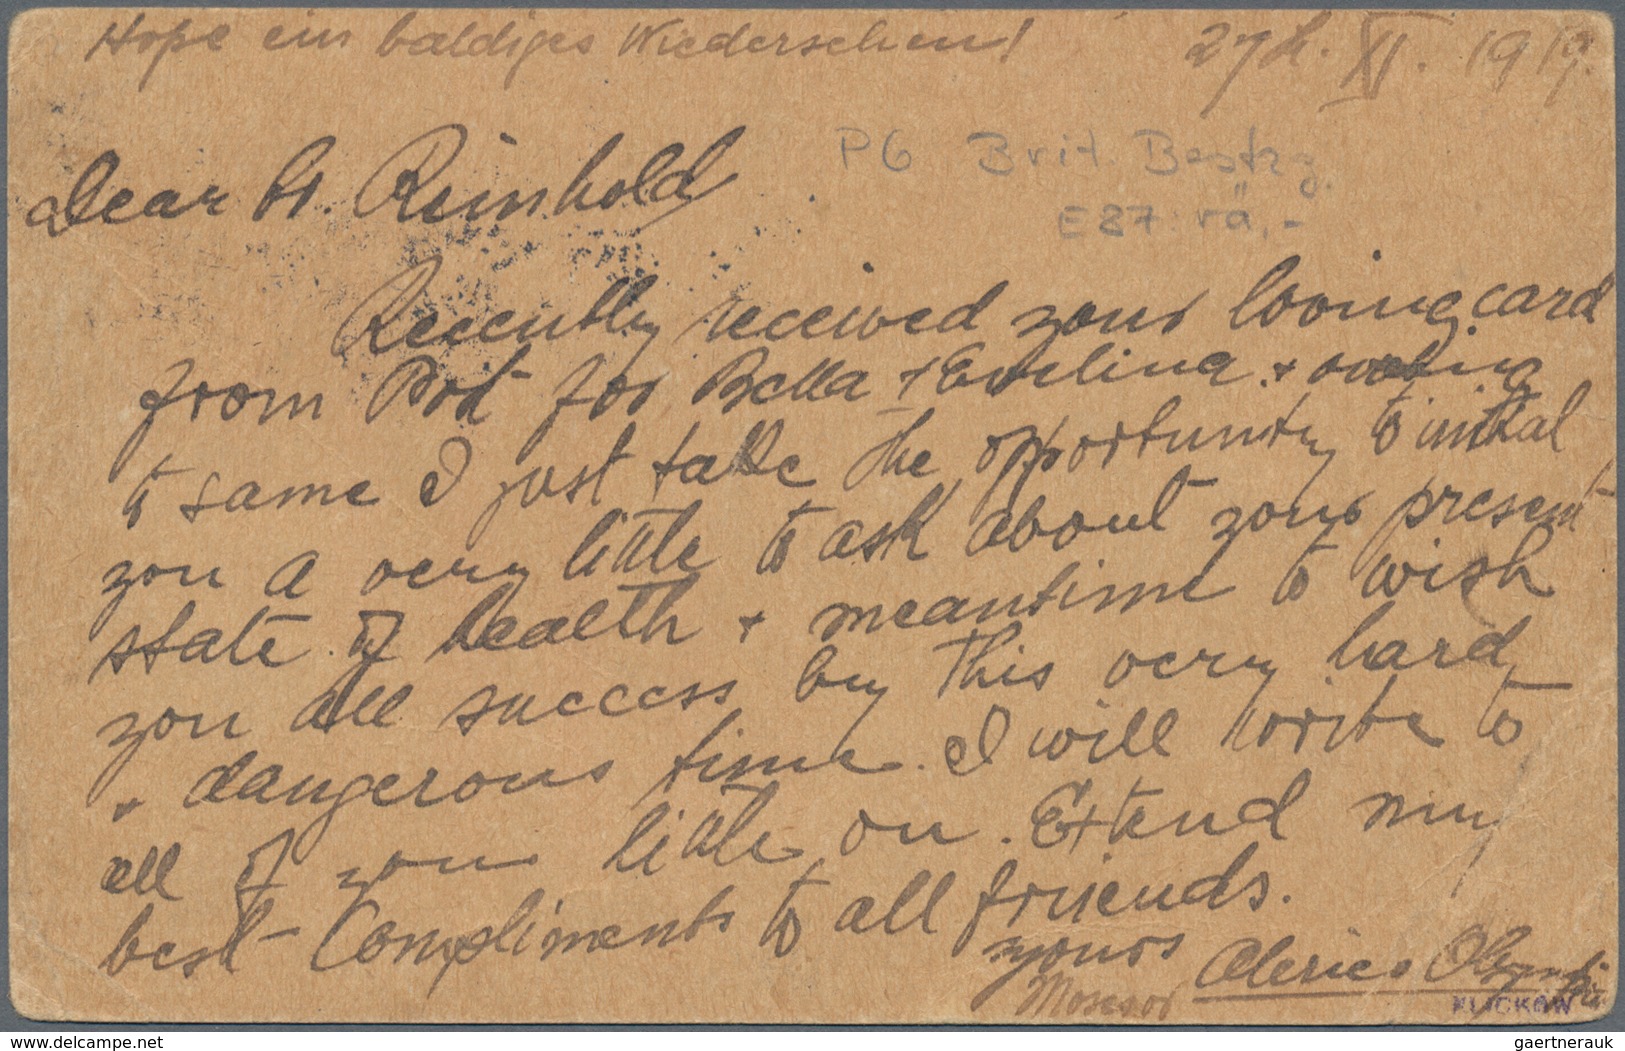 Hope ein baldiges Wiedersehen! 27h. XI. 1919.
P6 Brit. Besetzg.
E 87 rä,-
Dear Br. Reinhold
Recently received your loving card
from Pod for Bella + Evelina + owing
to same I just take the opportunity to
you a very little to ask about your present
state of health + meantime to wish
you all success by this very hard
+ dangerous time. I will write to
all of you little on. Extend my
best Compliments to all friends.
yours
KLICKOW
delcampe.net
gaertnerauk